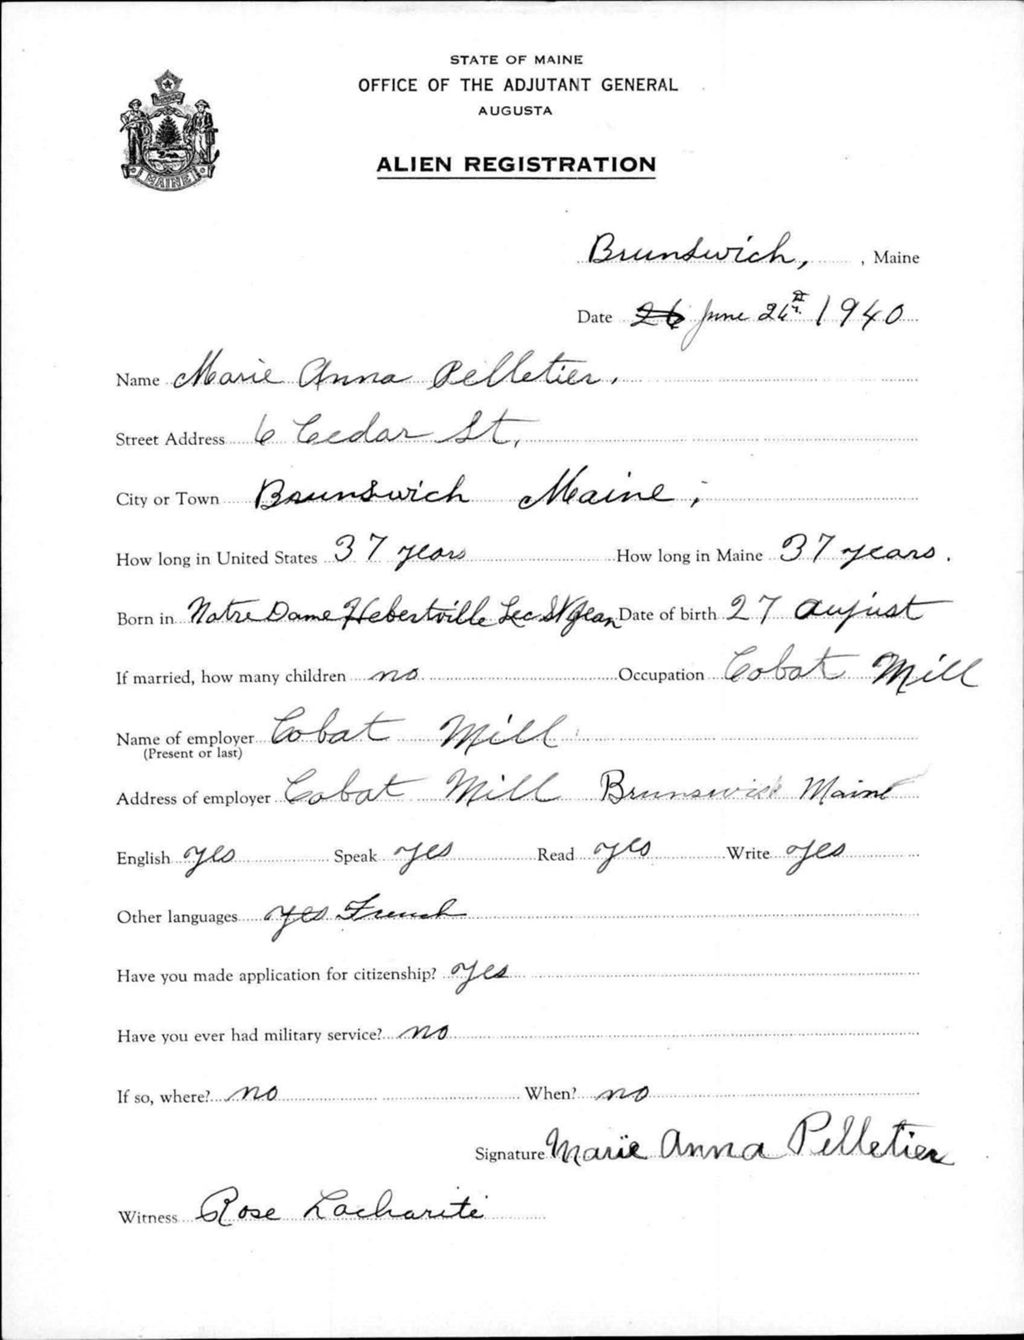 STATE OF MAINE
OFFICE OF THE ADJUTANT GENERAL
AUGUSTA
ALIEN REGISTRATION
MAINE
Brunswich, , Maine
Date 26 June 26th 1940
Name Marie Anna Pelletier.
Street Address 6 Cedar St,
City or Town Brunswich Maine,
How long in United States 37 years How long in Maine 37 years.
Born in Notre Dame Hebertville Lec St Jean Date of birth 27 August
If married, how many children no Occupation Cobat Mill
Name of employer Cobat Mill
(Present or last)
Address of employer Cobat Mill Brunswick Maine
English yes Speak yes Read yes Write yes
Other languages yes French
Have you made application for citizenship? yes
Have you ever had military service? no
If so, where? no When? no
Signature Marie Anna Pelletier
Witness Rose Lacharité